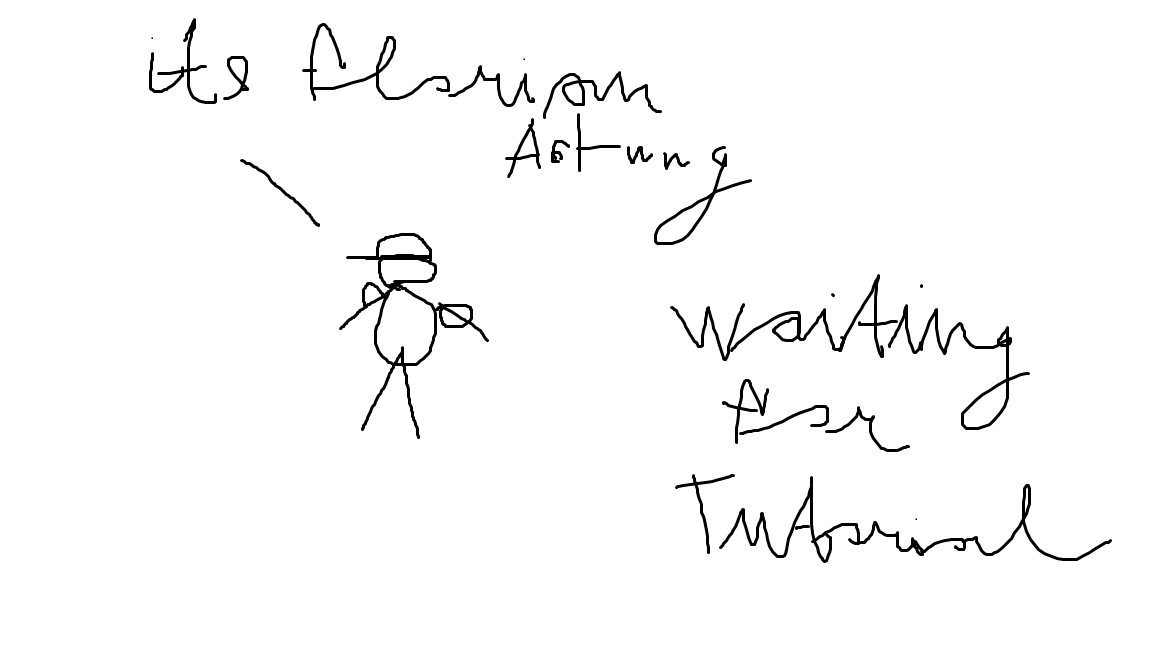 its florian
Astung
waiting
for
Tutorial